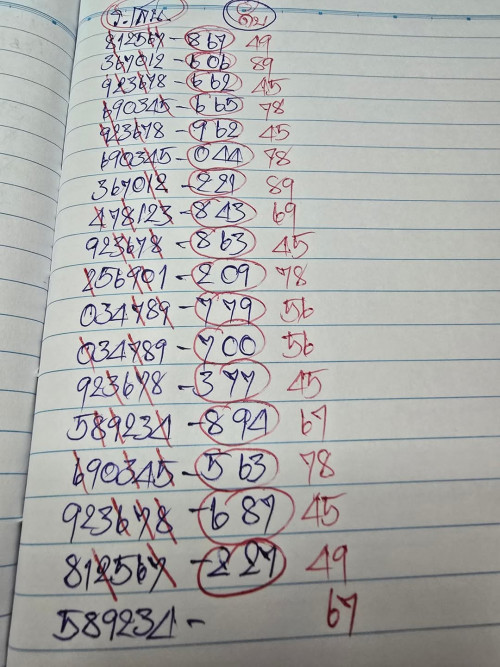 812567 - 867 49
367012 - 606 89
923678 - 662 45
690345 - 665 78
923678 - 962 45
690345 - 044 78
367012 - 221 89
478123 - 843 69
923678 - 863 45
256901 - 209 78
034789 - 779 56
034789 - 700 56
923678 - 377 45
589234 - 894 67
690345 - 563 78
923678 - 687 45
812567 - 227 49
589234 - 67